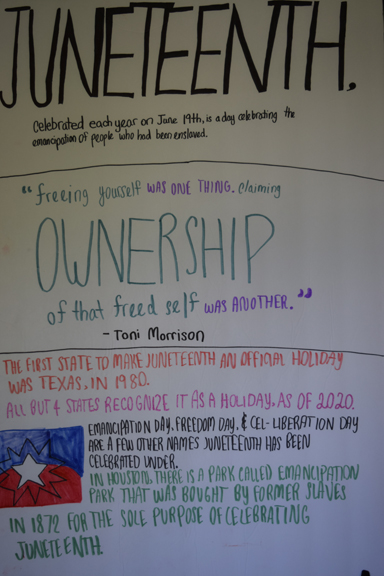 JUNETEENTH,
Celebrated each year on June 19th, is a day celebrating the
emancipation of people who had been enslaved.
"freeing yourself WAS ONE THING. claiming
OWNERSHIP
of that freed self WAS ANOTHER."
- Toni Morrison
THE FIRST STATE TO MAKE JUNETEENTH AN OFFICIAL HOLIDAY
WAS TEXAS, IN 1980.
ALL BUT 4 STATES RECOGNIZE IT AS A HOLIDAY, AS OF 2020.
EMANCIPATION DAY, FREEDOM DAY, & CEL-LIBERATION DAY
ARE A FEW OTHER NAMES JUNETEENTH HAS BEEN
CELEBRATED UNDER.
IN HOUSTON, THERE IS A PARK CALLED EMANCIPATION
PARK THAT WAS BOUGHT BY FORMER SLAVES
IN 1872 FOR THE SOLE PURPOSE OF CELEBRATING
JUNETEENTH.